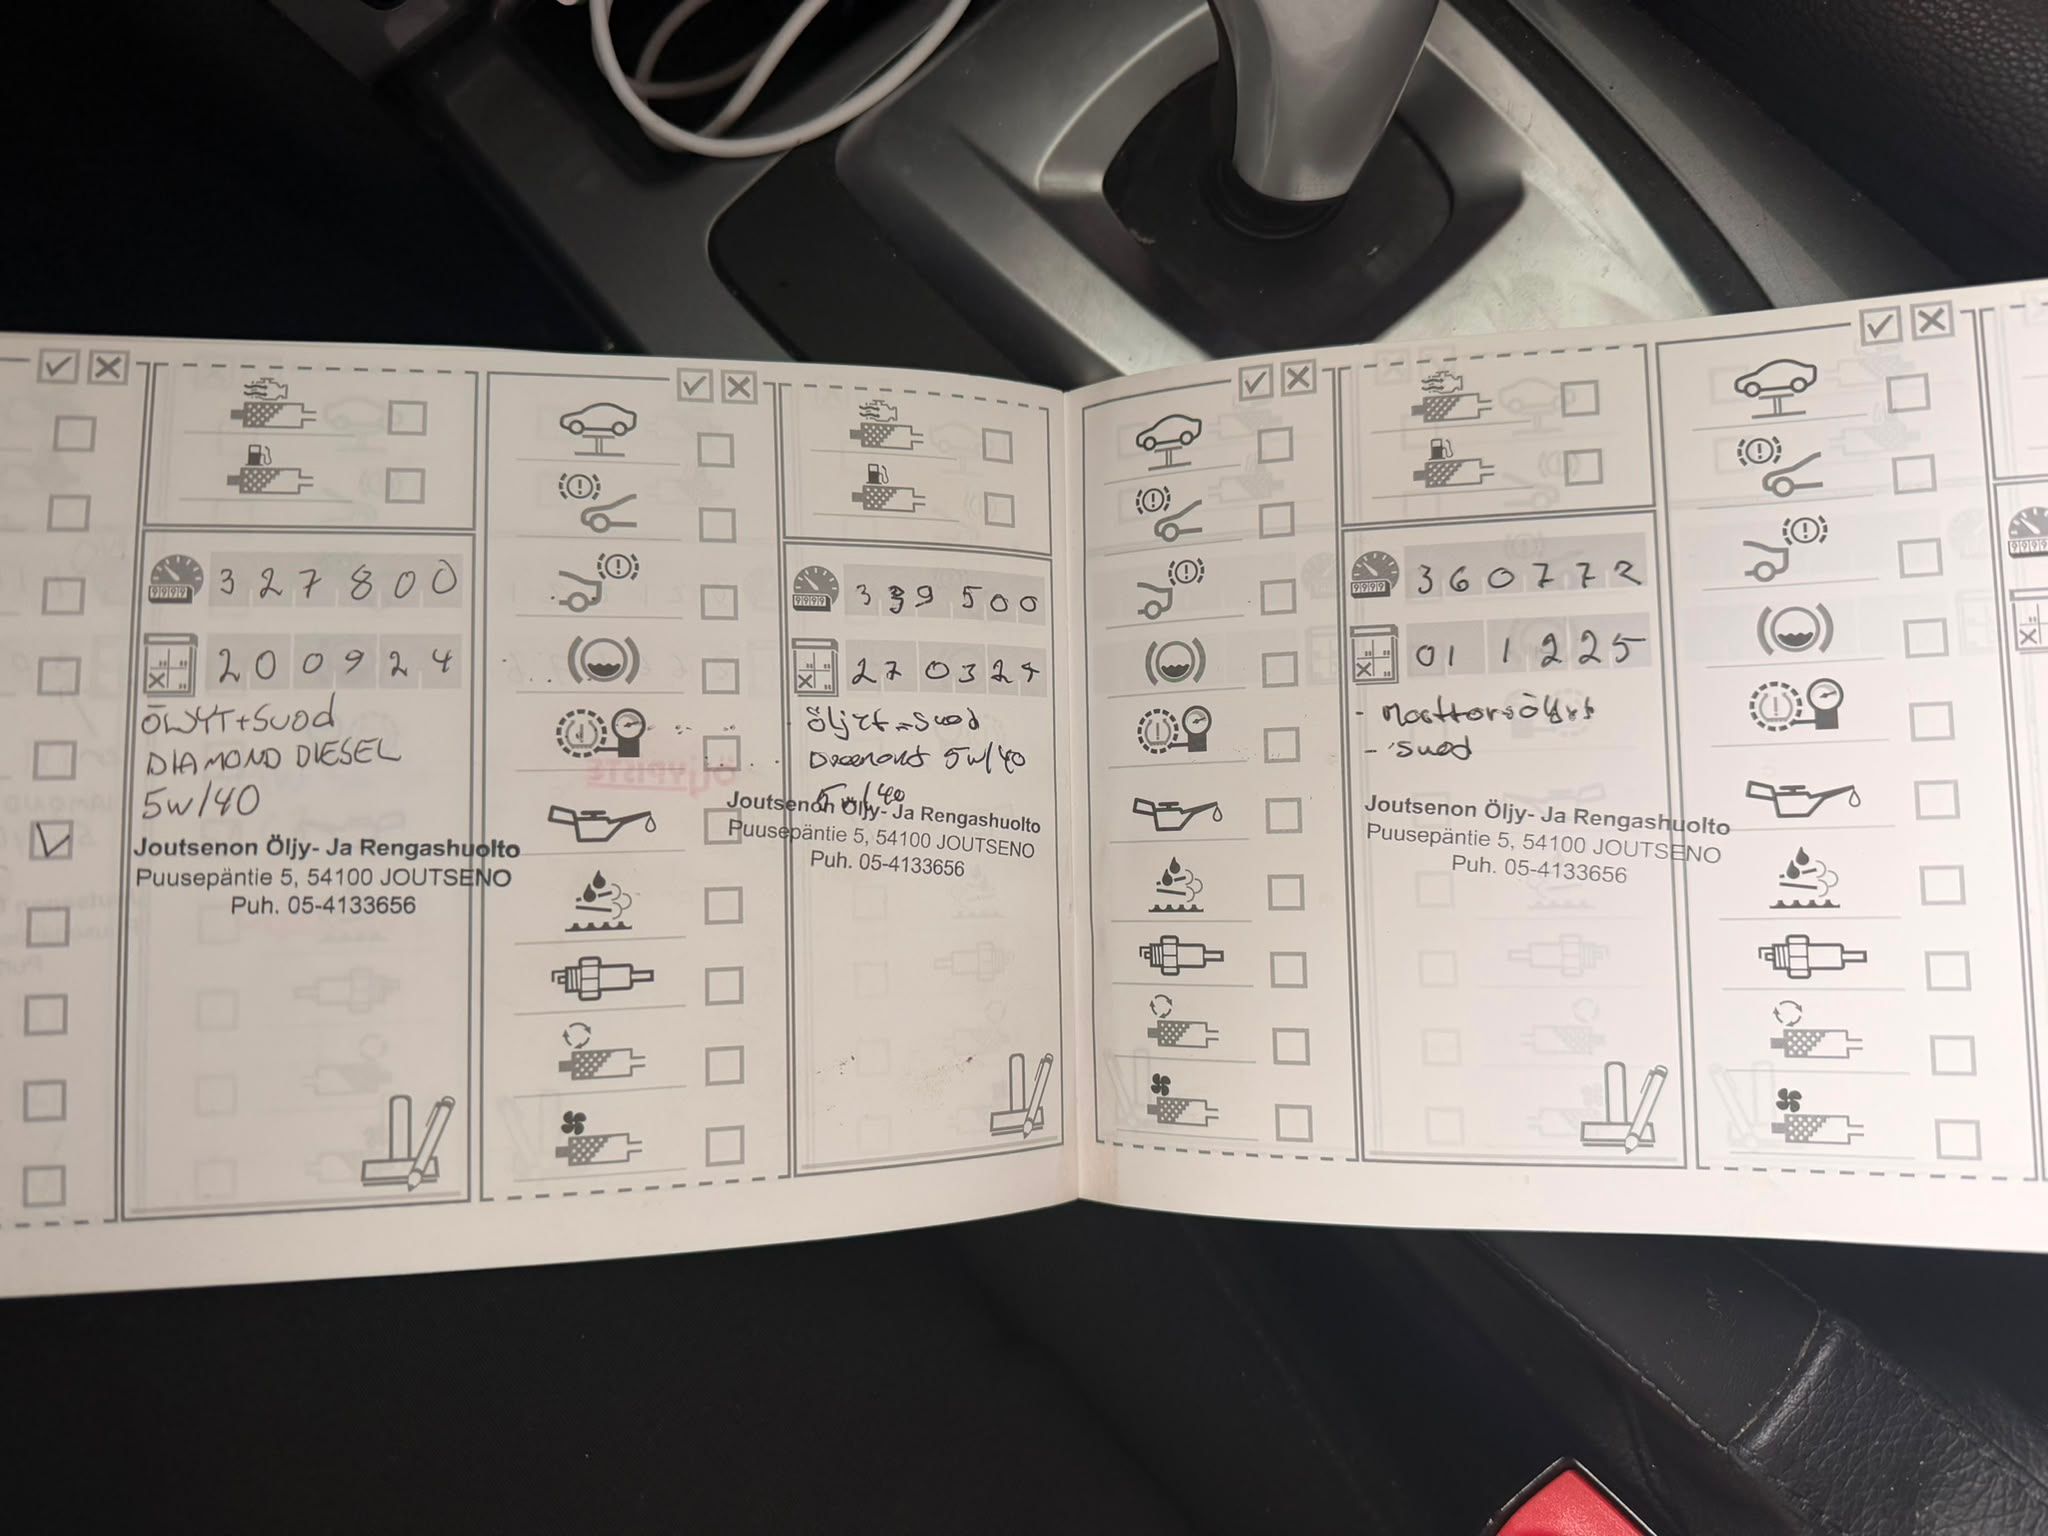 327800
200924
ÖLJYT+SUOD
DIAMOND DIESEL
5W/40
Joutsenon Öljy- Ja Rengashuolto
Puusepäntie 5, 54100 JOUTSENO
Puh. 05-4133656
339500
270324
Öljyt - Suod
5w/40
5w/40
Joutsenon Öljy- Ja Rengashuolto
Puusepäntie 5, 54100 JOUTSENO
Puh. 05-4133656
360772
011225
- Moottoriöljyt
- suod
Joutsenon Öljy- Ja Rengashuolto
Puusepäntie 5, 54100 JOUTSENO
Puh. 05-4133656